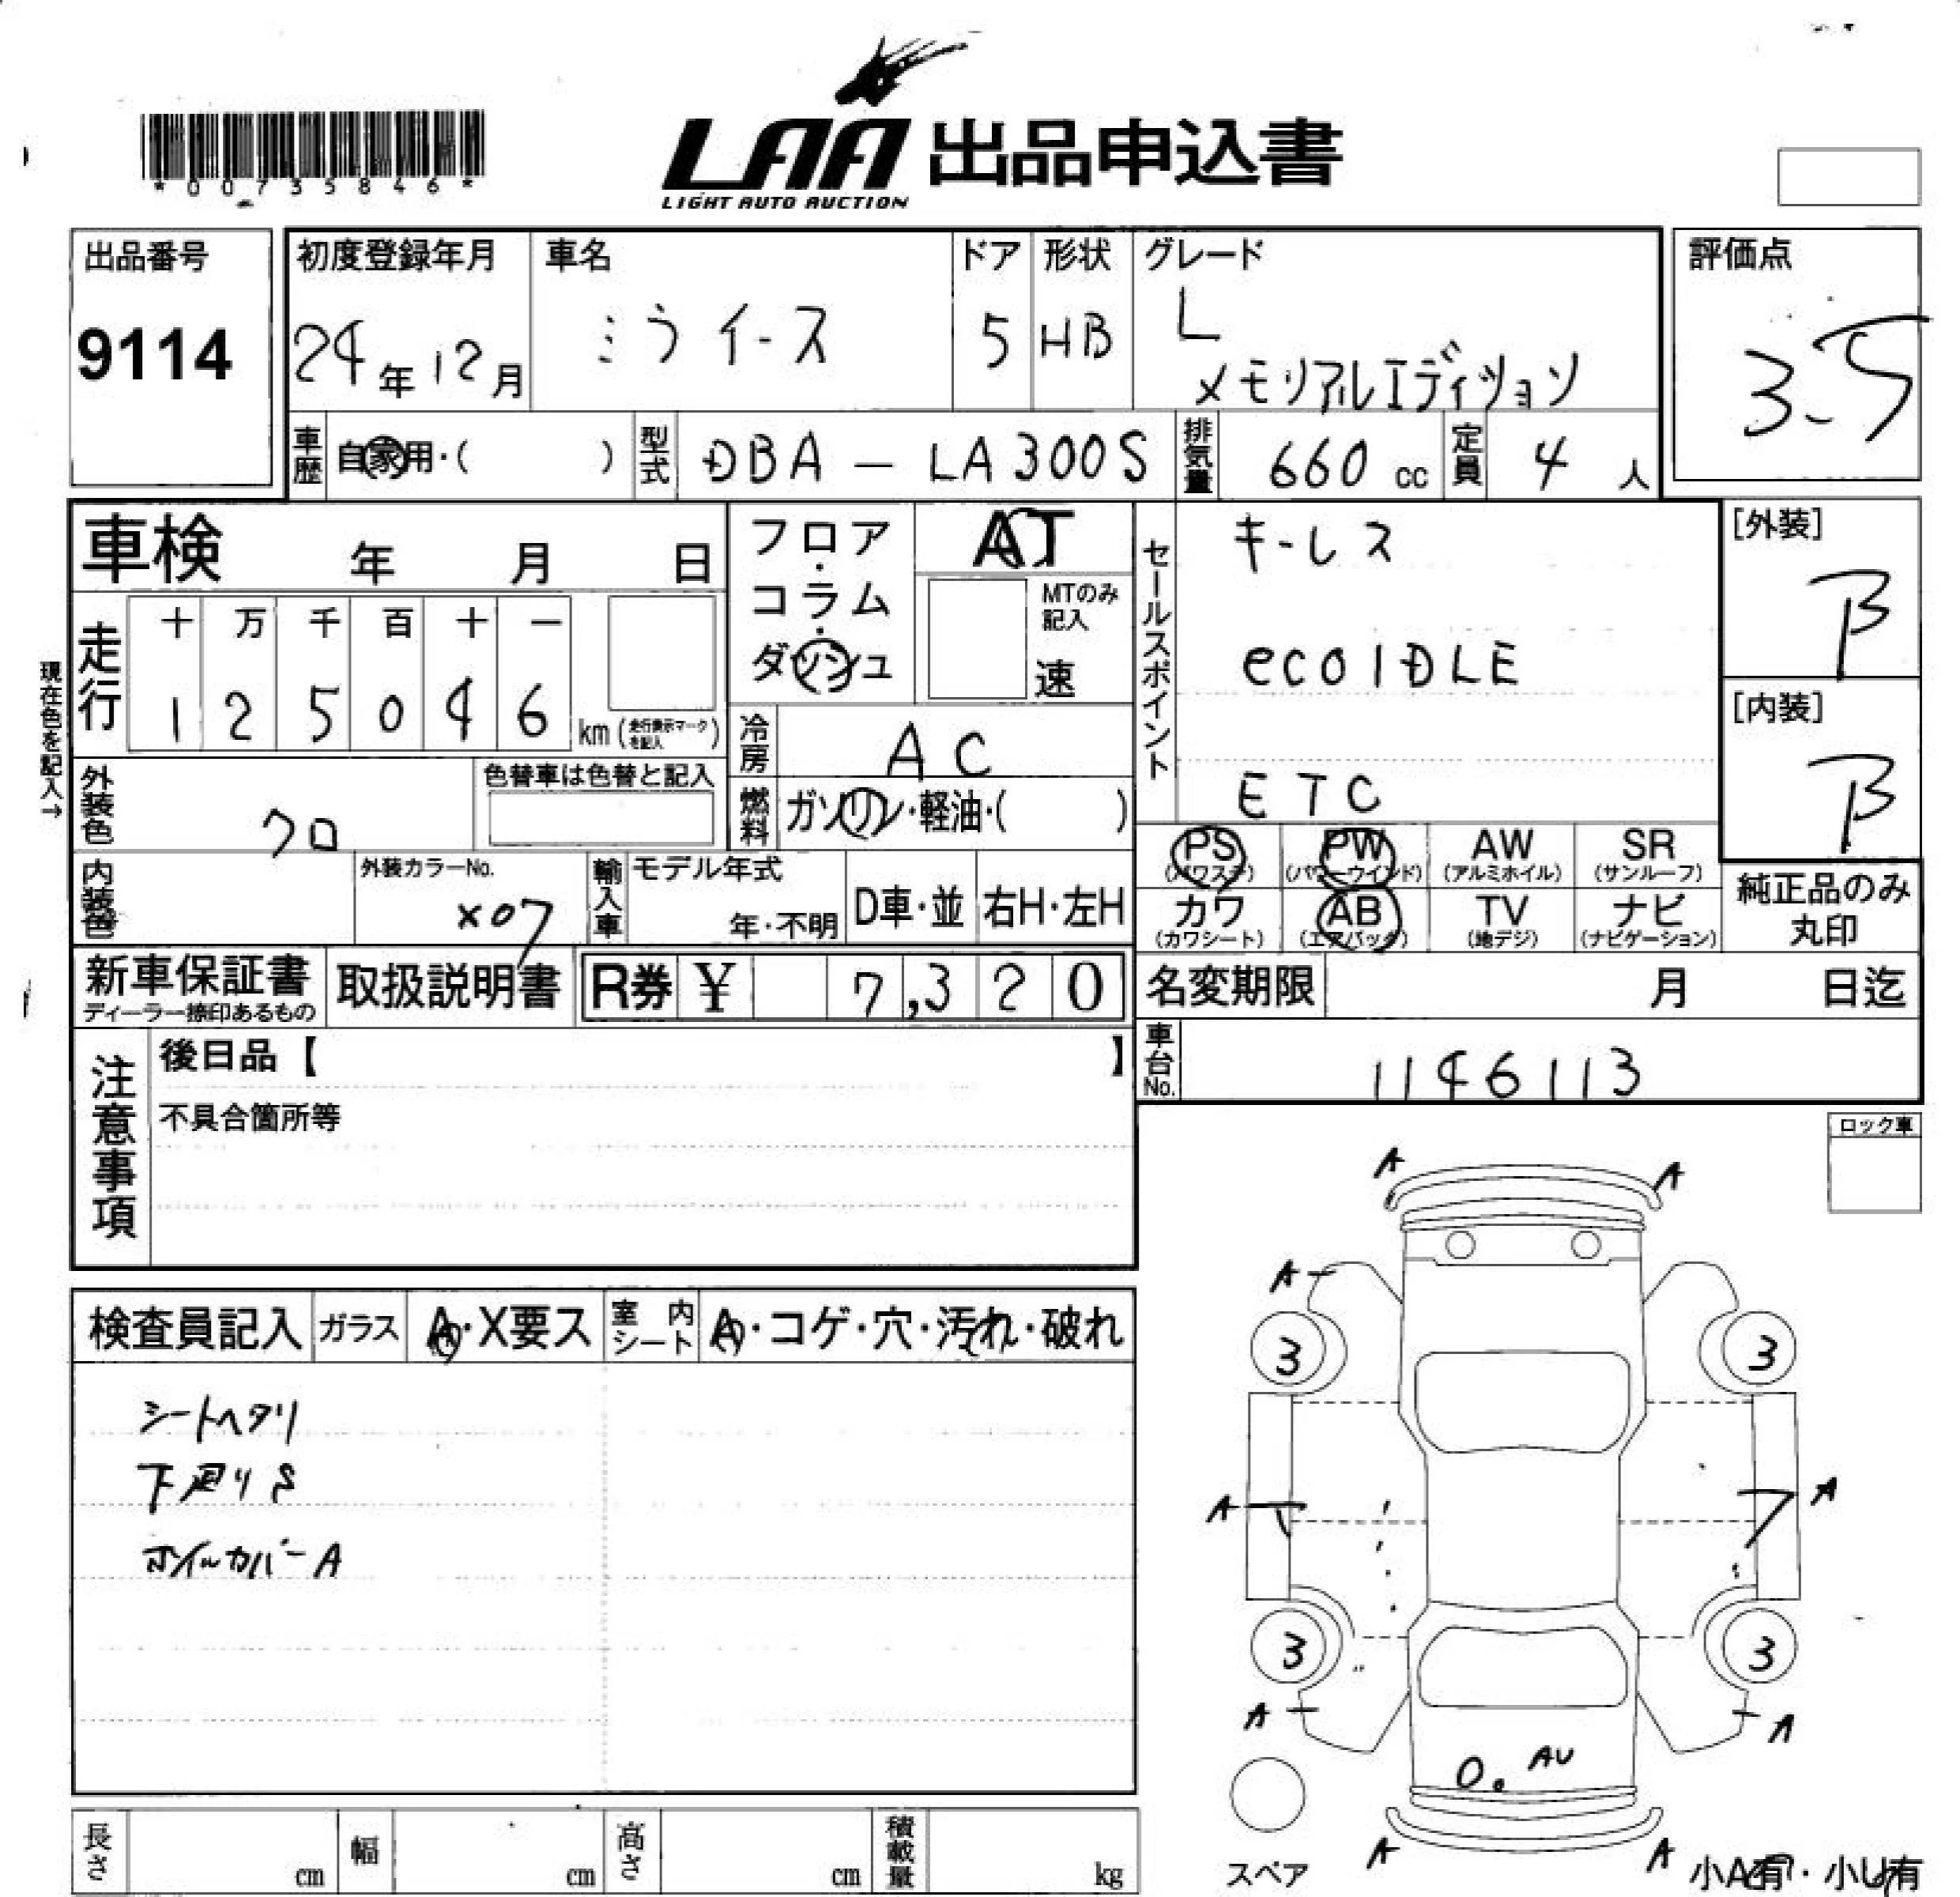 *00735846*
LAA 出品申込書
LIGHT AUTO AUCTION
出品番号
9114
初度登録年月
24年12月
車名
ミライース
ドア
5
形状
HB
グレード
L
メモリアルエディション
評価点
3.5
車歴
自家用・( )
型式
DBA - LA300S
排気量
660 cc
定員
4 人
車検 年 月 日
走行
十 万 千 百 十 一
1 2 5 0 4 6 km (走行表示マークを記入)
現在色を記入→
外装色
クロ
色替車は色替と記入
内装色
外装カラーNo.
X07
フロア・コラム・ダッシュ
AT
MTのみ記入
速
冷房
AC
燃料
ガソリン・軽油・( )
輸入車
モデル年式
年・不明
D車・並
右H・左H
セールスポイント
キーレス
ecoIDLE
ETC
[外装]
B
[内装]
B
PS
(パワステ)
PW
(パワーウインド)
AW
(アルミホイル)
SR
(サンルーフ)
カワ
(カワシート)
AB
(エアバック)
TV
(地デジ)
ナビ
(ナビゲーション)
純正品のみ
丸印
新車保証書
ディーラー捺印あるもの
取扱説明書
R券 ¥ 7,320
名変期限 月 日迄
車台No.
1146113
注意事項
後日品【 】
不具合箇所等
ロック車
検査員記入
ガラス
A・X要ス
室内シート
A・コゲ・穴・汚れ・破れ
シートヘタリ
下廻りS
ホイルカバーA
A A
A
3 3
A A
3 3
A A
AU
A A
スペア
小A有・小U有
長さ cm
幅 cm
高さ cm
積載量 kg